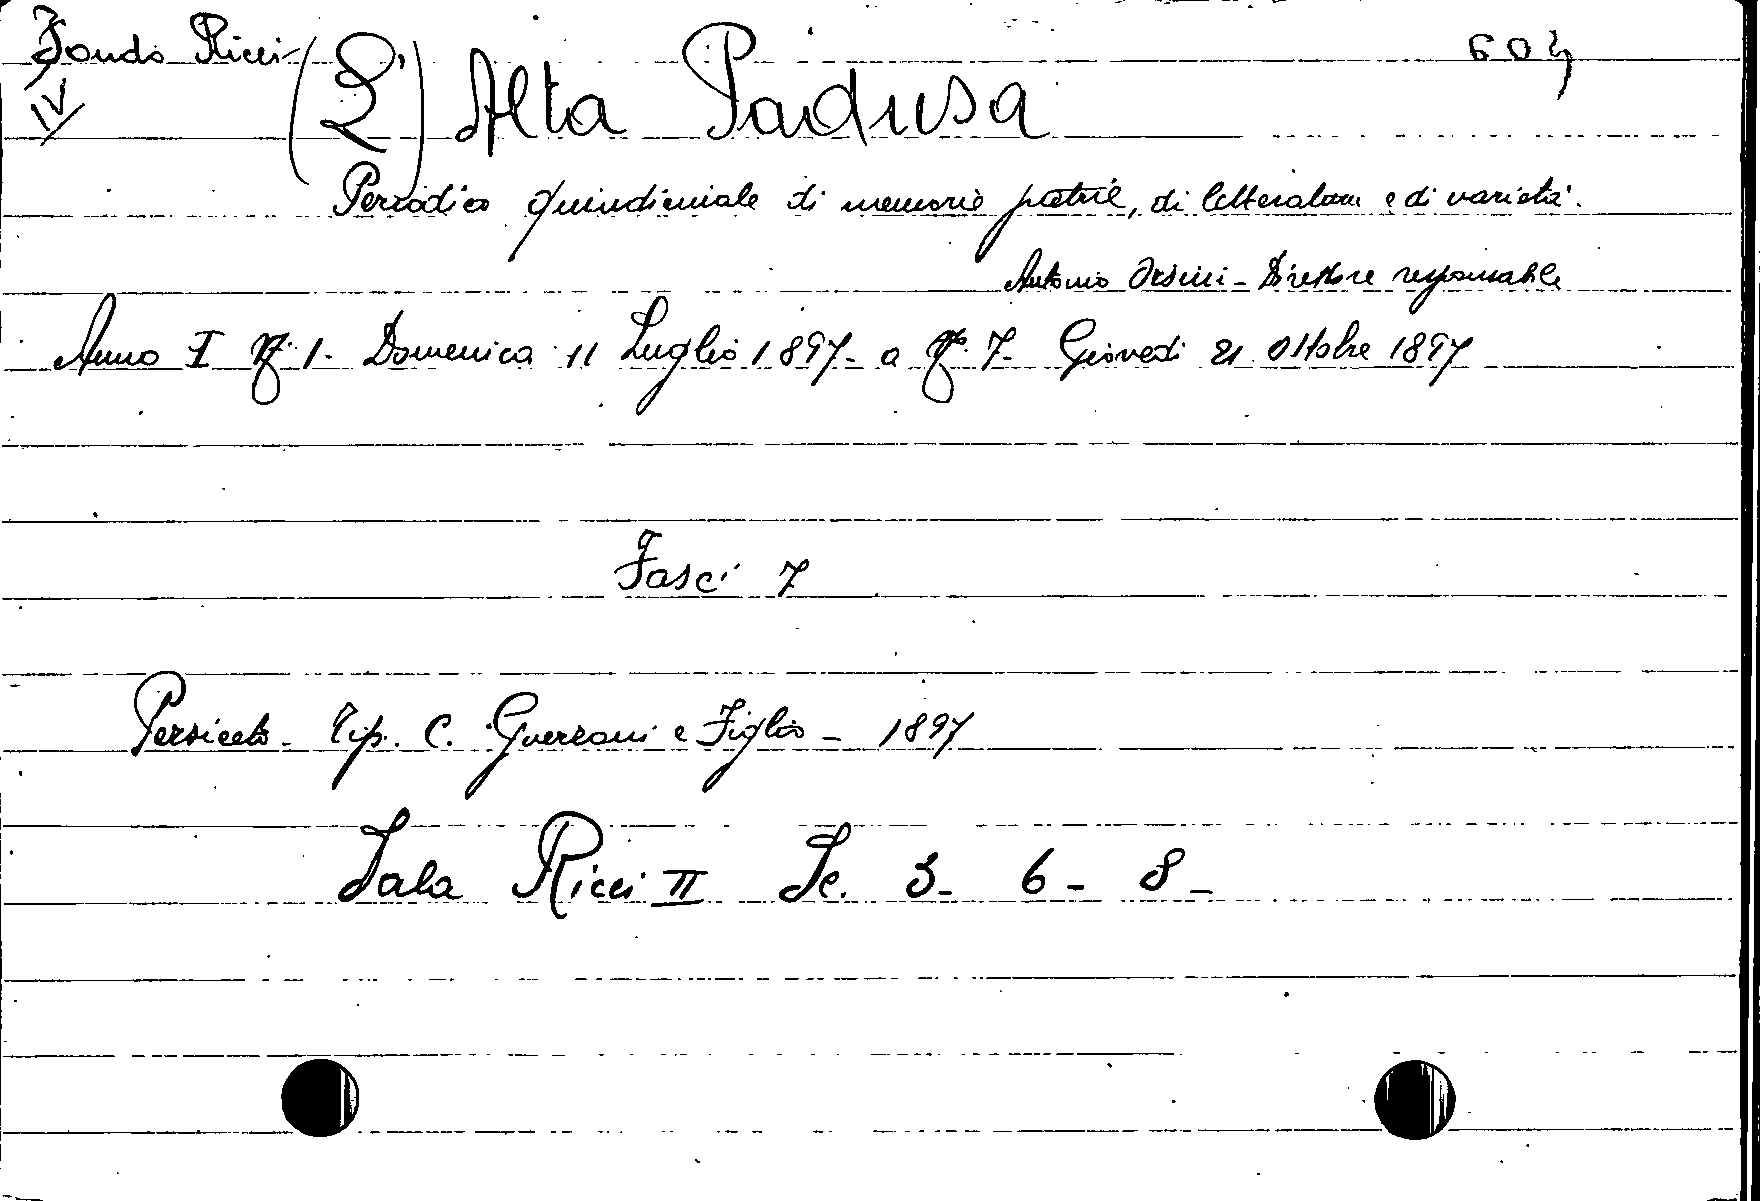 Fondo Ricci (L') Alta Padusa
IV
Periodico quindicinale di memorie patrie, di letteratura e di varietà.
Antonio Orsini - Direttore responsabile
Anno I N. 1. Domenica 11 Luglio 1897- a N. 7- Giovedì 21 Ottobre 1897
Fasci 7
Persiceto - Tip. C. Guerzoni e Figlio - 1897
Sala Ricci II Sc. 3- 6- 8-